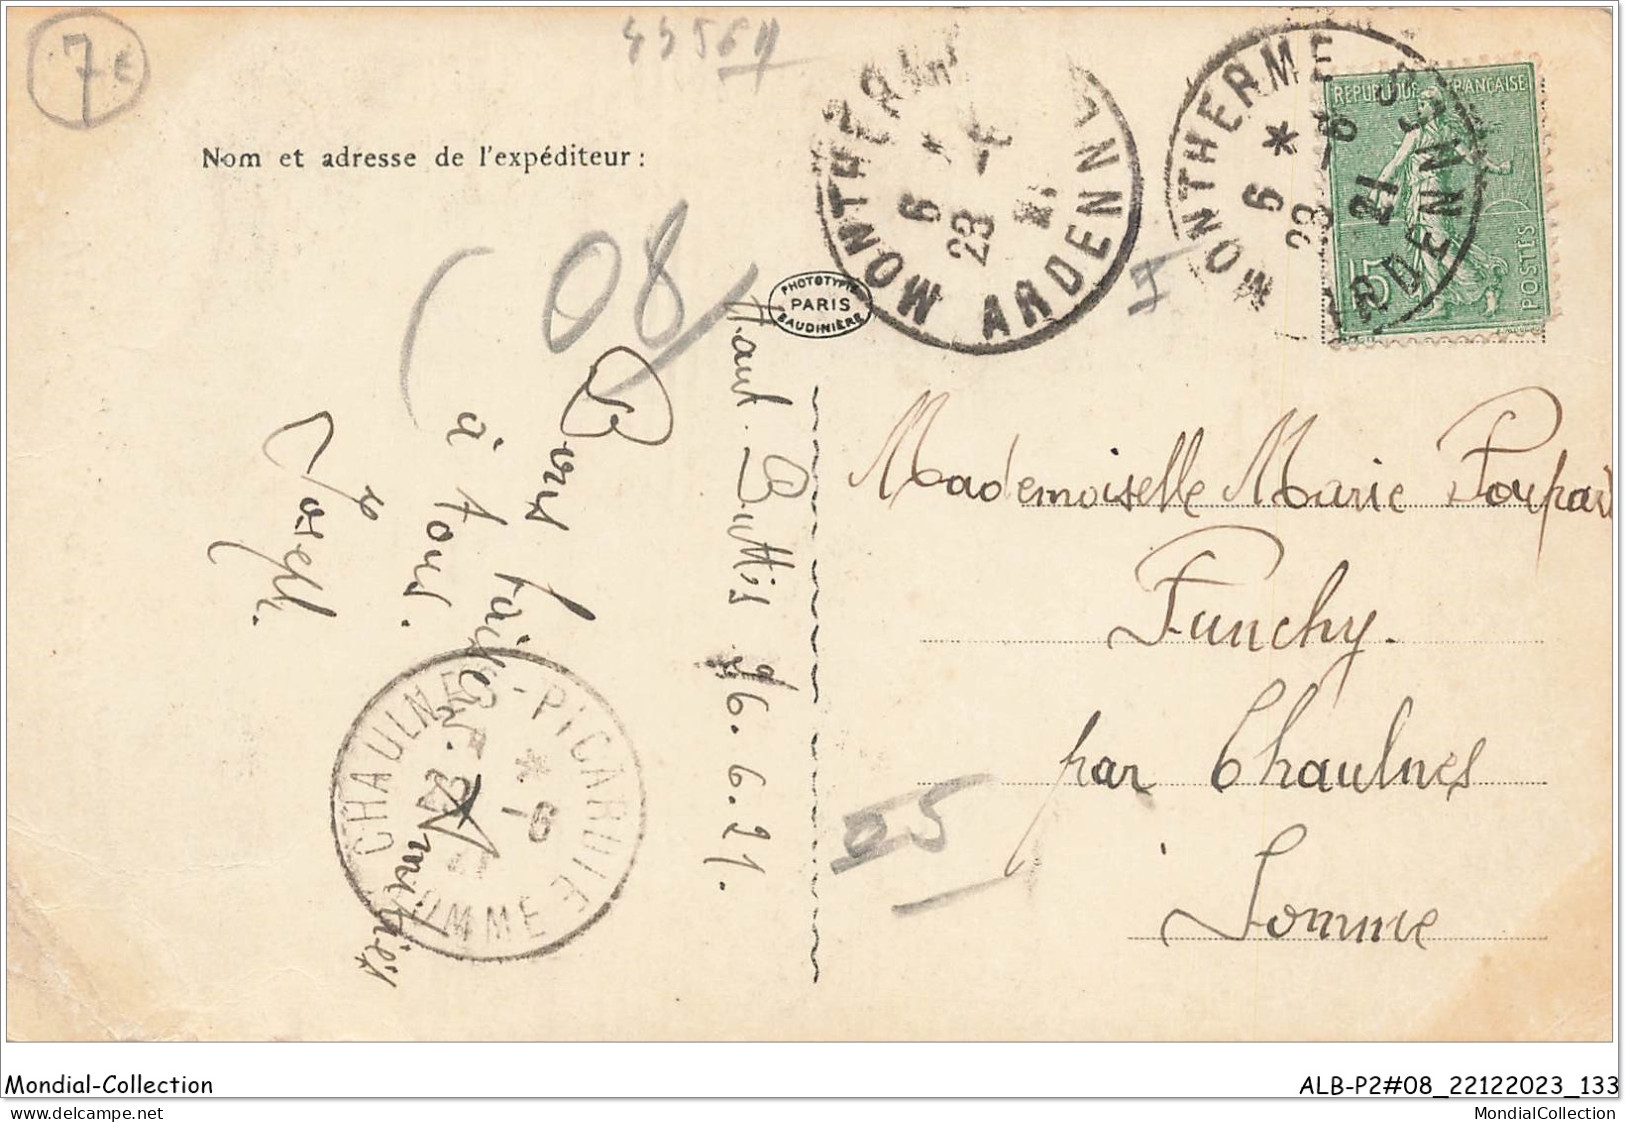 7€
44561
Nom et adresse de l'expéditeur :
(08)
PHOTOTYPIE
PARIS
BAUDINIÈRE
MONTHERMÉ
6 *
23 -6
ARDENNES
MONTHERMÉ
6 * -6
23 21
ARDENNES
REPUBLIQUE FRANÇAISE
POSTES
15
Haut. Buttis 6. 6. 21.
Bons baisers
à tous.
amitiés
Joseph.
CHAULNES-PICARDIE
* -6
21
SOMME
Mademoiselle Marie Poupart
Funchy.
par Chaulnes
Somme
Mondial-Collection
ALB-P2#08_22122023_133
delcampe.net
MondialCollection